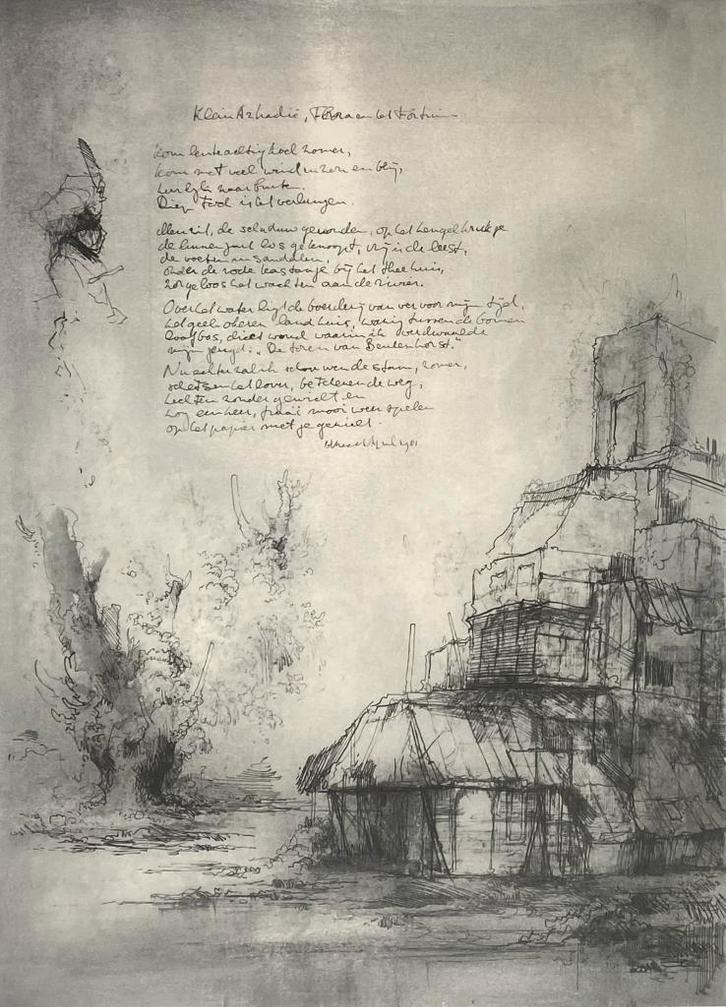 Klein Arkadië, Flora en het Fortuin
kom lenteachtig koel zomer,
kom met veel wind in zon en blij,
heerlijk naar buiten.
Diep rood is het verlangen.
de schaduw geworden, op het hengelkrukje
de linnen jas los geknoopt, vrij is de leest,
de voeten in sandalen,
onder de rode kastanje bij het theehuis,
zorgeloos het wachten aan de rivier.
Over het water ligt de boerderij van ver voor mijn tijd,
het geel okeren landhuis, wazig tussen de bomen
loofbos, dicht woud waarin ik verdwaalde
mijn jeugd: "De toren van Beukenhorst."
Nu echter zal ik schouwen de stam, zomer,
schetsen het lover, betekenende weg,
zonder gewicht en
nog een keer, fraai mooi weer spelen
op het papier met je gezicht.